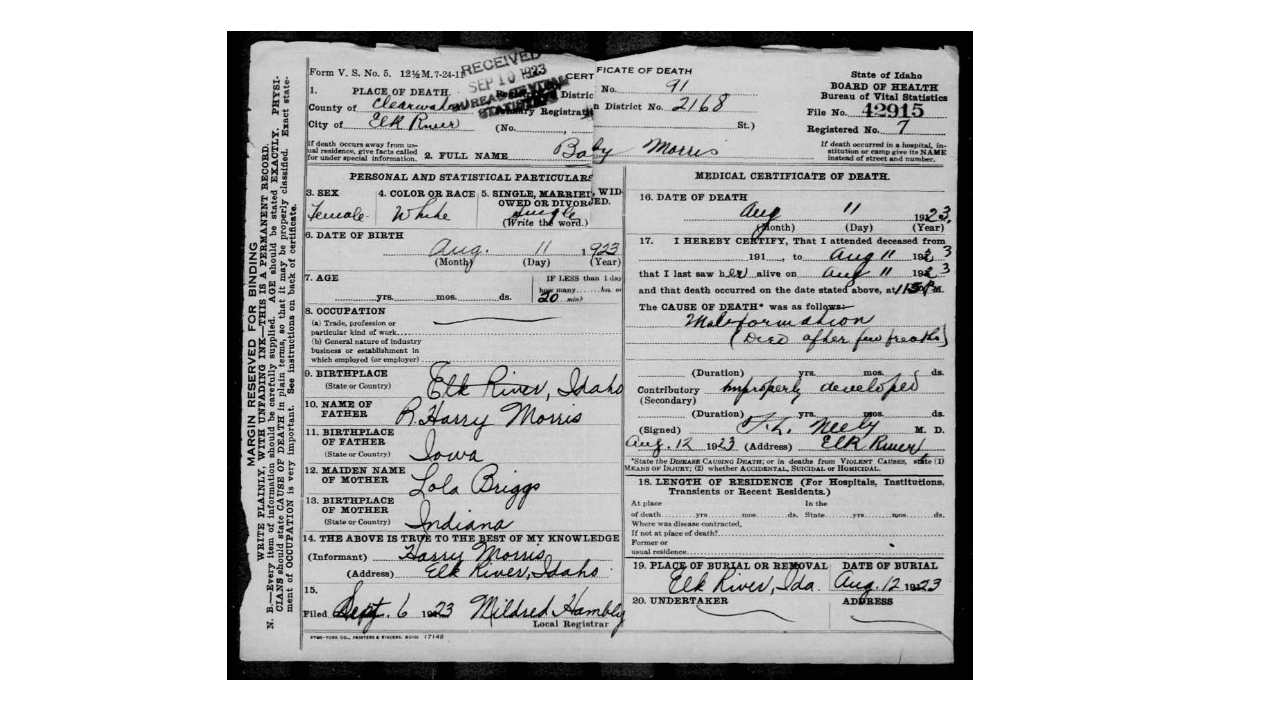 Form V. S. No. 5. 12½M. 7-24-1
RECEIVED
SEP 10 1923
BUREAU OF VITAL
STATISTICS
CERTIFICATE OF DEATH
State of Idaho
BOARD OF HEALTH
Bureau of Vital Statistics
File No. 42915
Registered No. 7
1. PLACE OF DEATH
County of Clearwater
City of Elk River
Distric No. 91
Registrati n District No. 2168
(No. St.)
If death occurs away from us-
ual residence, give facts called
for under special information.
2. FULL NAME Baby Morris
If death occurred in a hospital, in-
stitution or camp give its NAME
instead of street and number.
PERSONAL AND STATISTICAL PARTICULARS
3. SEX
Female
4. COLOR OR RACE
White
5. SINGLE, MARRIED, WID
OWED OR DIVORCED.
Single
(Write the word.)
6. DATE OF BIRTH
Aug. 11 1923
(Month) (Day) (Year)
7. AGE
yrs. mos. ds.
IF LESS than 1 day
how many hrs. or
20 min)
8. OCCUPATION
(a) Trade, profession or
particular kind of work
(b) General nature of industry
business or establishment in
which employed (or employer)
9. BIRTHPLACE
(State or Country)
Elk River, Idaho
10. NAME OF
FATHER
R. Harry Morris
11. BIRTHPLACE
OF FATHER
(State or Country)
Iowa
12. MAIDEN NAME
OF MOTHER
Lola Briggs
13. BIRTHPLACE
OF MOTHER
(State or Country)
Indiana
14. THE ABOVE IS TRUE TO THE BEST OF MY KNOWLEDGE
(Informant) Harry Morris
(Address) Elk River, Idaho
15.
Filed Sept. 6 1923 Mildred Hambly
Local Registrar
SYMS-YORK CO., PRINTERS & BINDERS, BOISE 17143
MEDICAL CERTIFICATE OF DEATH.
16. DATE OF DEATH
Aug 11 1923
(Month) (Day) (Year)
17. I HEREBY CERTIFY, That I attended deceased from
191 , to Aug 11 1923
that I last saw her alive on Aug 11 1923
and that death occurred on the date stated above, at M.
The CAUSE OF DEATH* was as follows:
Maleformation
(Died after few
(Duration) yrs. mos. ds.
Contributory Improperly developed
(Secondary)
(Duration) yrs. mos. ds.
(Signed) T.L. Neely M. D.
Aug. 12 1923 (Address) Elk River
*State the DISEASE CAUSING DEATH; or in deaths from VIOLENT CAUSES, state (1)
MEANS OF INJURY; (2) whether ACCIDENTAL, SUICIDAL or HOMICIDAL.
18. LENGTH OF RESIDENCE (For Hospitals, Institutions,
Transients or Recent Residents.)
At place In the
of death yrs. mos. ds. State yrs. mos. ds.
Where was disease contracted,
if not at place of death?
Former or
usual residence
19. PLACE OF BURIAL OR REMOVAL
Elk River, Ida.
DATE OF BURIAL
Aug. 12 1923
20. UNDERTAKER
ADDRESS
MARGIN RESERVED FOR BINDING
WRITE PLAINLY, WITH UNFADING INK—THIS IS A PERMANENT RECORD.
N. B.—Every item of information should be carefully supplied. AGE should be stated EXACTLY. PHYSI-
CIANS should state CAUSE OF DEATH in plain terms, so that it may be properly classified. Exact state-
ment of OCCUPATION is very important. See instructions on back of certificate.